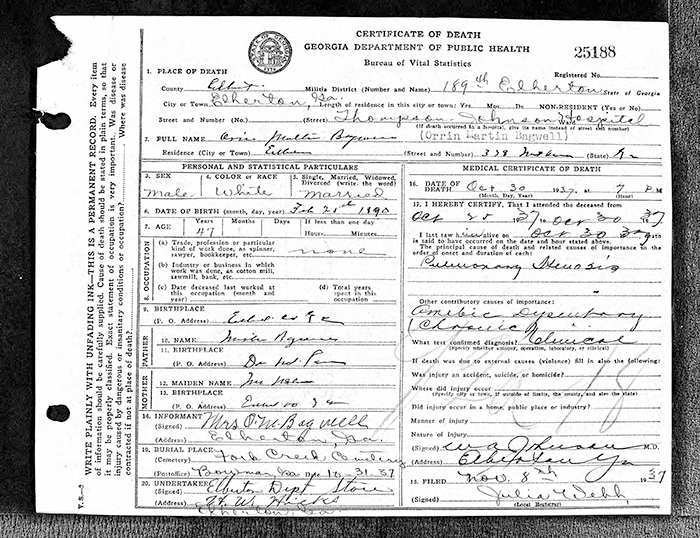 CERTIFICATE OF DEATH
GEORGIA DEPARTMENT OF PUBLIC HEALTH
Bureau of Vital Statistics
25188
1. PLACE OF DEATH
Registered No.
County Elbert Militia District (Number and Name) 189th Elberton State of Georgia
City or Town Elberton, Ga. Length of residence in city or town: Yrs. Mos. Ds. NON-RESIDENT (Yes or No)
Street and Number (No.) (Street) Thompson Johnson Hospital Ward
(If death occurred in a hospital, give its name instead of street and number)
2. FULL NAME Martin
(Orrin Martin Bagwell)
Residence (City or Town) Street and Number (State) Ga
PERSONAL AND STATISTICAL PARTICULARS
3. SEX
male
4. COLOR or RACE
White
5. Single, Married, Widowed, Divorced (write the word)
married
6. DATE OF BIRTH (month, day, year) Feb 1890
7. AGE
Years 47 Months Days If less than one day
Hours Minutes
8. OCCUPATION
(a) Trade, profession or particular kind of work done, as spinner, sawyer, bookkeeper, etc. none
(b) Industry or business in which work was done, as cotton mill, sawmill, bank, etc.
(c) Date deceased last worked at this occupation (month and year)
(d) Total years spent in this occupation
9. BIRTHPLACE
(P. O. Address)
FATHER
10. NAME
11. BIRTHPLACE
(P. O. Address)
MOTHER
12. MAIDEN NAME
13. BIRTHPLACE
(P. O. Address)
14. INFORMANT
(Signed) Mrs O.M. Bagwell
(Address) Elberton, Ga.
19. BURIAL PLACE
(Cemetery) Fork Creek Cemetery
(Postoffice) Bowman Ga Date 10-31-37
20. UNDERTAKER
(Signed) Elberton Dept Store
(Address)
Elberton, Ga
MEDICAL CERTIFICATE OF DEATH
16. DATE OF DEATH Oct 30 1937, at 7 P M
(Month, Day, Year) (Hour)
17. I HEREBY CERTIFY, That I attended the deceased from
Oct 25 1937 to Oct 30 1937
I last saw him alive on Oct 30 death
is said to have occurred on the date and hour stated above.
The principal cause of death and related causes of importance in the order of onset and duration of each:
Pulmonary
Other contributory causes of importance:
Amebic Dysentery
(Chronic)
What test confirmed diagnosis? Clinical
(Specify whether autopsy, operation, laboratory, or clinical)
If death was due to external causes (violence) fill in also the following:
Was injury an accident, suicide, or homicide?
Where did injury occur
(Specify city or town, if outside of limits, the county, and also the state)
Did injury occur in a home, public place or industry?
Manner of injury
Nature of injury
(Signed) Johnson M.D.
(Address) Elberton Ga
15. FILED Nov. 8th 1937
(Signed) Julia Webb
(Local Registrar)
WRITE PLAINLY WITH UNFADING INK—THIS IS A PERMANENT RECORD. Every item
of information should be carefully supplied. Cause of death should be stated in plain terms, so that
it may be properly classified. Exact statement of occupation is very important. Was disease or
injury caused by dangerous or insanitary conditions or occupation? Where was disease
contracted if not at place of death?
V. S.